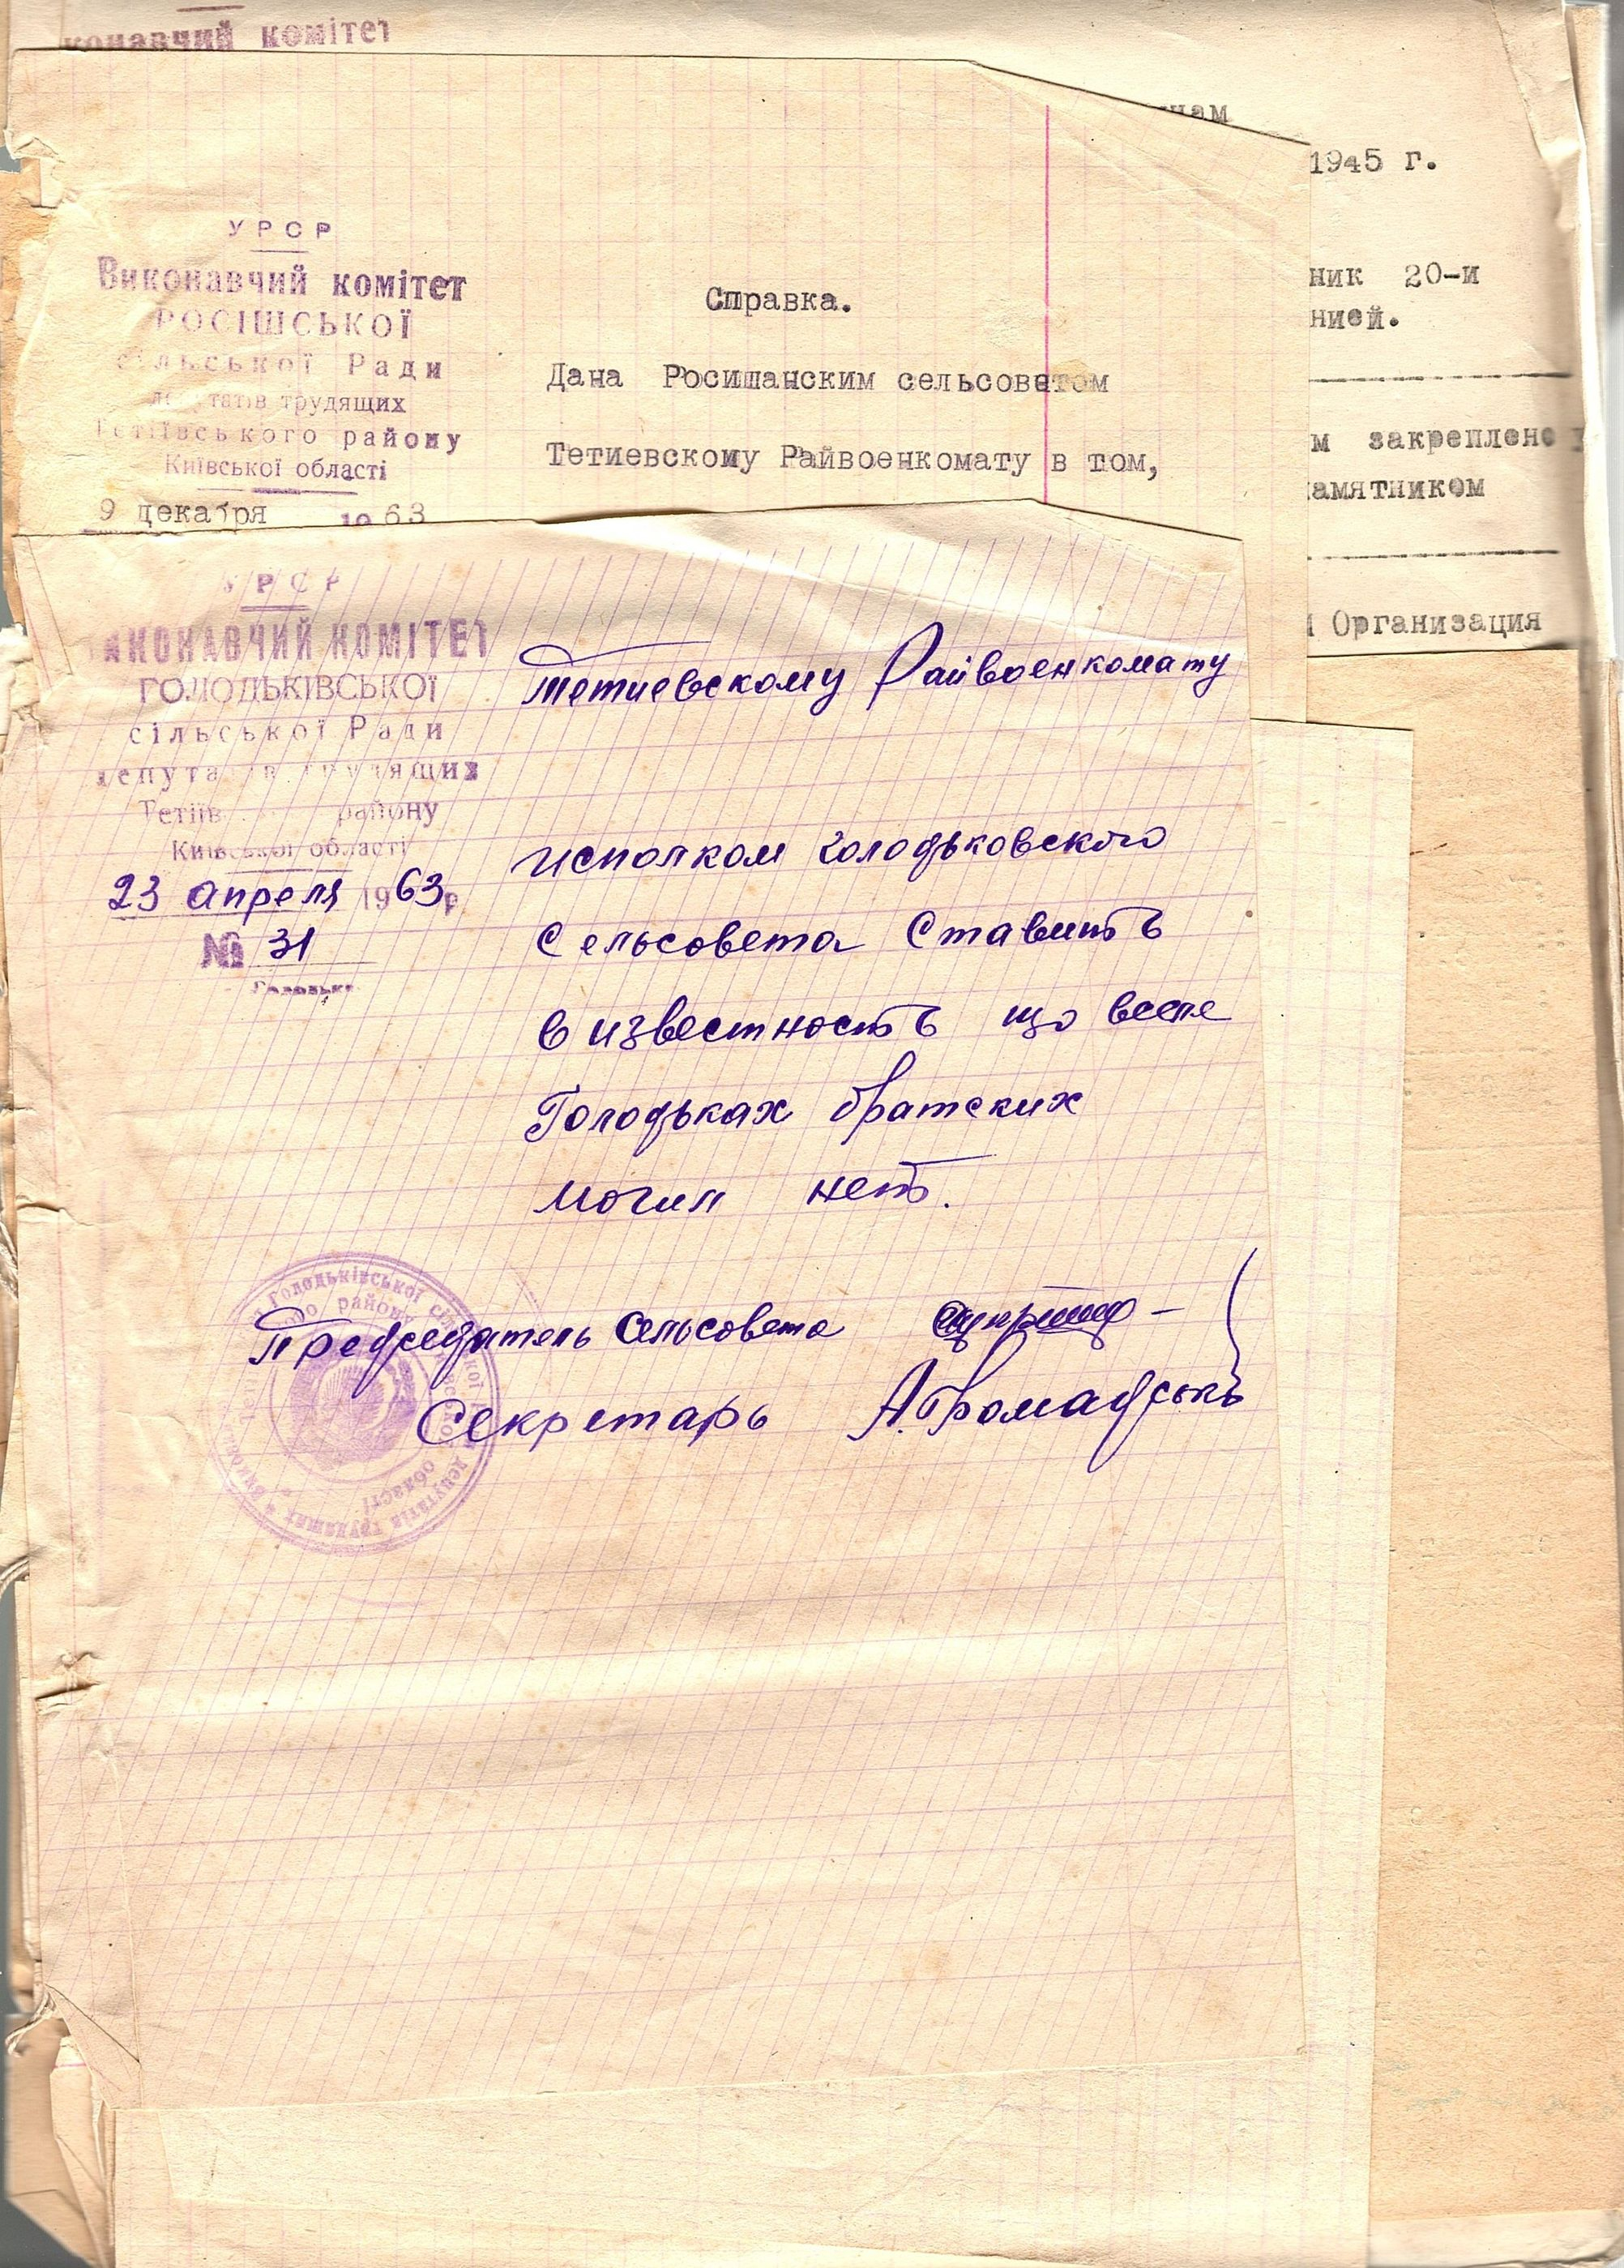 конавчий комітет
1945 г.
ник 20-и
нией.
м закреплено
амятником
Организация
УРСР
Виконавчий комітет
РОСІШСЬКОЇ
сільської Ради
депутатів трудящих
Тетіївського району
Київської області
9 декабря 1963
Справка.
Дана Росишанским сельсоветом
Тетиевскому Райвоенкомату в том,
УРСР
ВИКОНАВЧИЙ КОМІТЕТ
ГОЛОДЬКІВСЬКОЇ
сільської Ради
депутатів трудящих
Тетіїв району
Київської області
23 апреля 1963р
№ 31
Тетиевскому Райвоенкомату
исполком Голодьковского
Сельсовета Ставить
в известность що весле
Голодьках братских
могил неть.
Председатель Сельсовета
Секретарь А. Громадськ